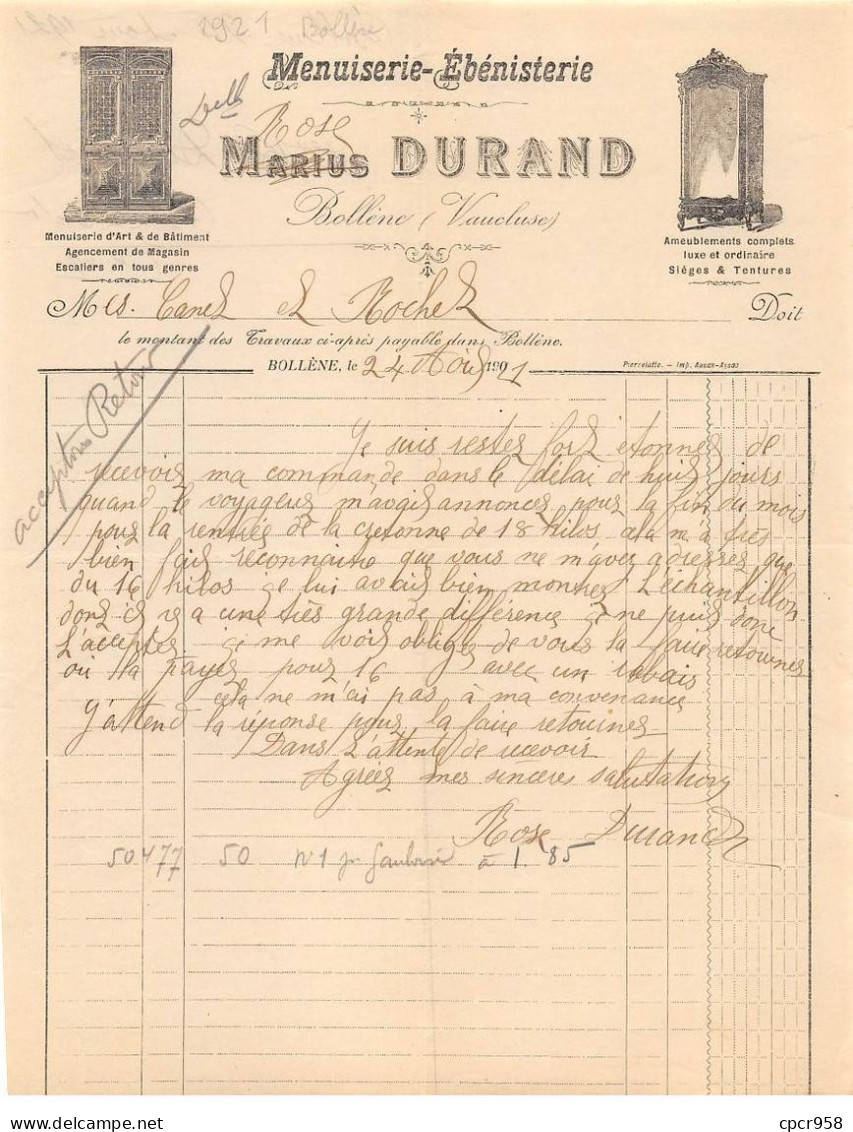 1921 Bollène
Menuiserie-Ébénisterie
Rose
MARIUS DURAND
Bollène (Vaucluse)
Menuiserie d'Art & de Bâtiment
Agencement de Magasin
Escaliers en tous genres
Ameublements complets
luxe et ordinaire
Sièges & Tentures
Mes. Canet et Rochet Doit
le montant des Travaux ci-après payable dans Bollène.
BOLLÈNE, le 24 Août 1901
Pierrelatte. — Imp.
acceptons Retour
Je suis restez fort étonnez de
recevoir ma commande dans le délai de huit jours
quand le voyageur m'avait annoncez pour la fin du mois
pour la rentrée de la cretonne de 18 kilos cela m'a très
bien fait reconnaitre que vous ne m'avez adressez que
du 16 kilos je lui avais bien montrez l'échantillon
dont il y a une très grande différence je ne puis donc
l'acceptez je me vois obligez de vous la faire retournez
ou la payez pour 16 avec un rabais
cela ne m'ai pas à ma convenance
J'attend la réponse pour la faire retournez
Dans l'attente de recevoir
Agréez mes sinceres salutations
Rose Durand
50477 50 n°1 à 1.85
cpcr958